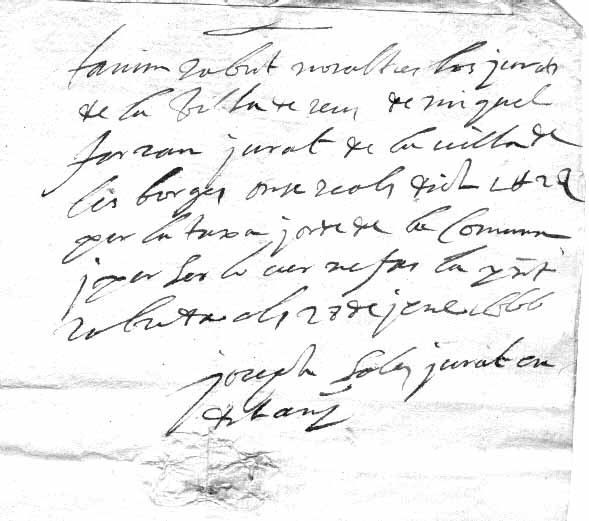 tanim rebut nosaltres los jurats
de la Villa de reus de miquel
ferran jurat de la villa de
les borges onse reals dich 11 R
per la taxa jorde de la Comuna
j per ser lo ver ne fas la pnt
rebuda als 27 de jene 1666
joseph Soler jurat en
dit any